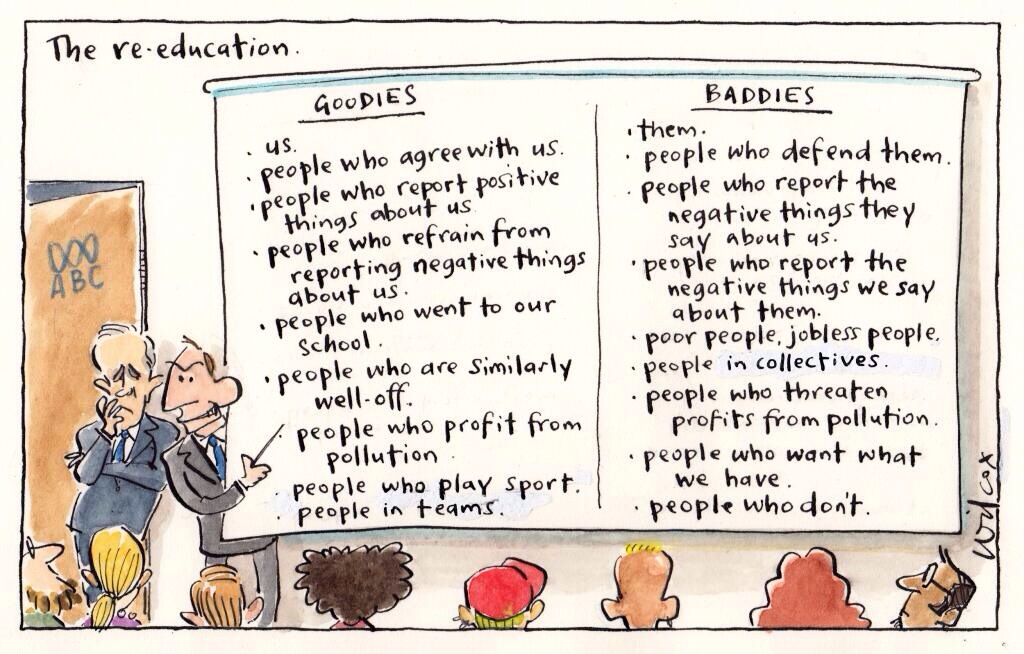 The re-education.
ABC
GOODIES
. us.
. people who agree with us.
. people who report positive
things about us
. people who refrain from
reporting negative things
about us.
. people who went to our
school.
. people who are similarly
well-off.
. people who profit from
pollution.
people who play sport.
. people in teams.
BADDIES
. them.
. people who defend them.
. people who report the
negative things they
say about us.
. people who report the
negative things we say
about them.
. poor people, jobless people.
. people in collectives.
. people who threaten
profits from pollution.
. people who want what
we have.
. people who don't.
Wilcox